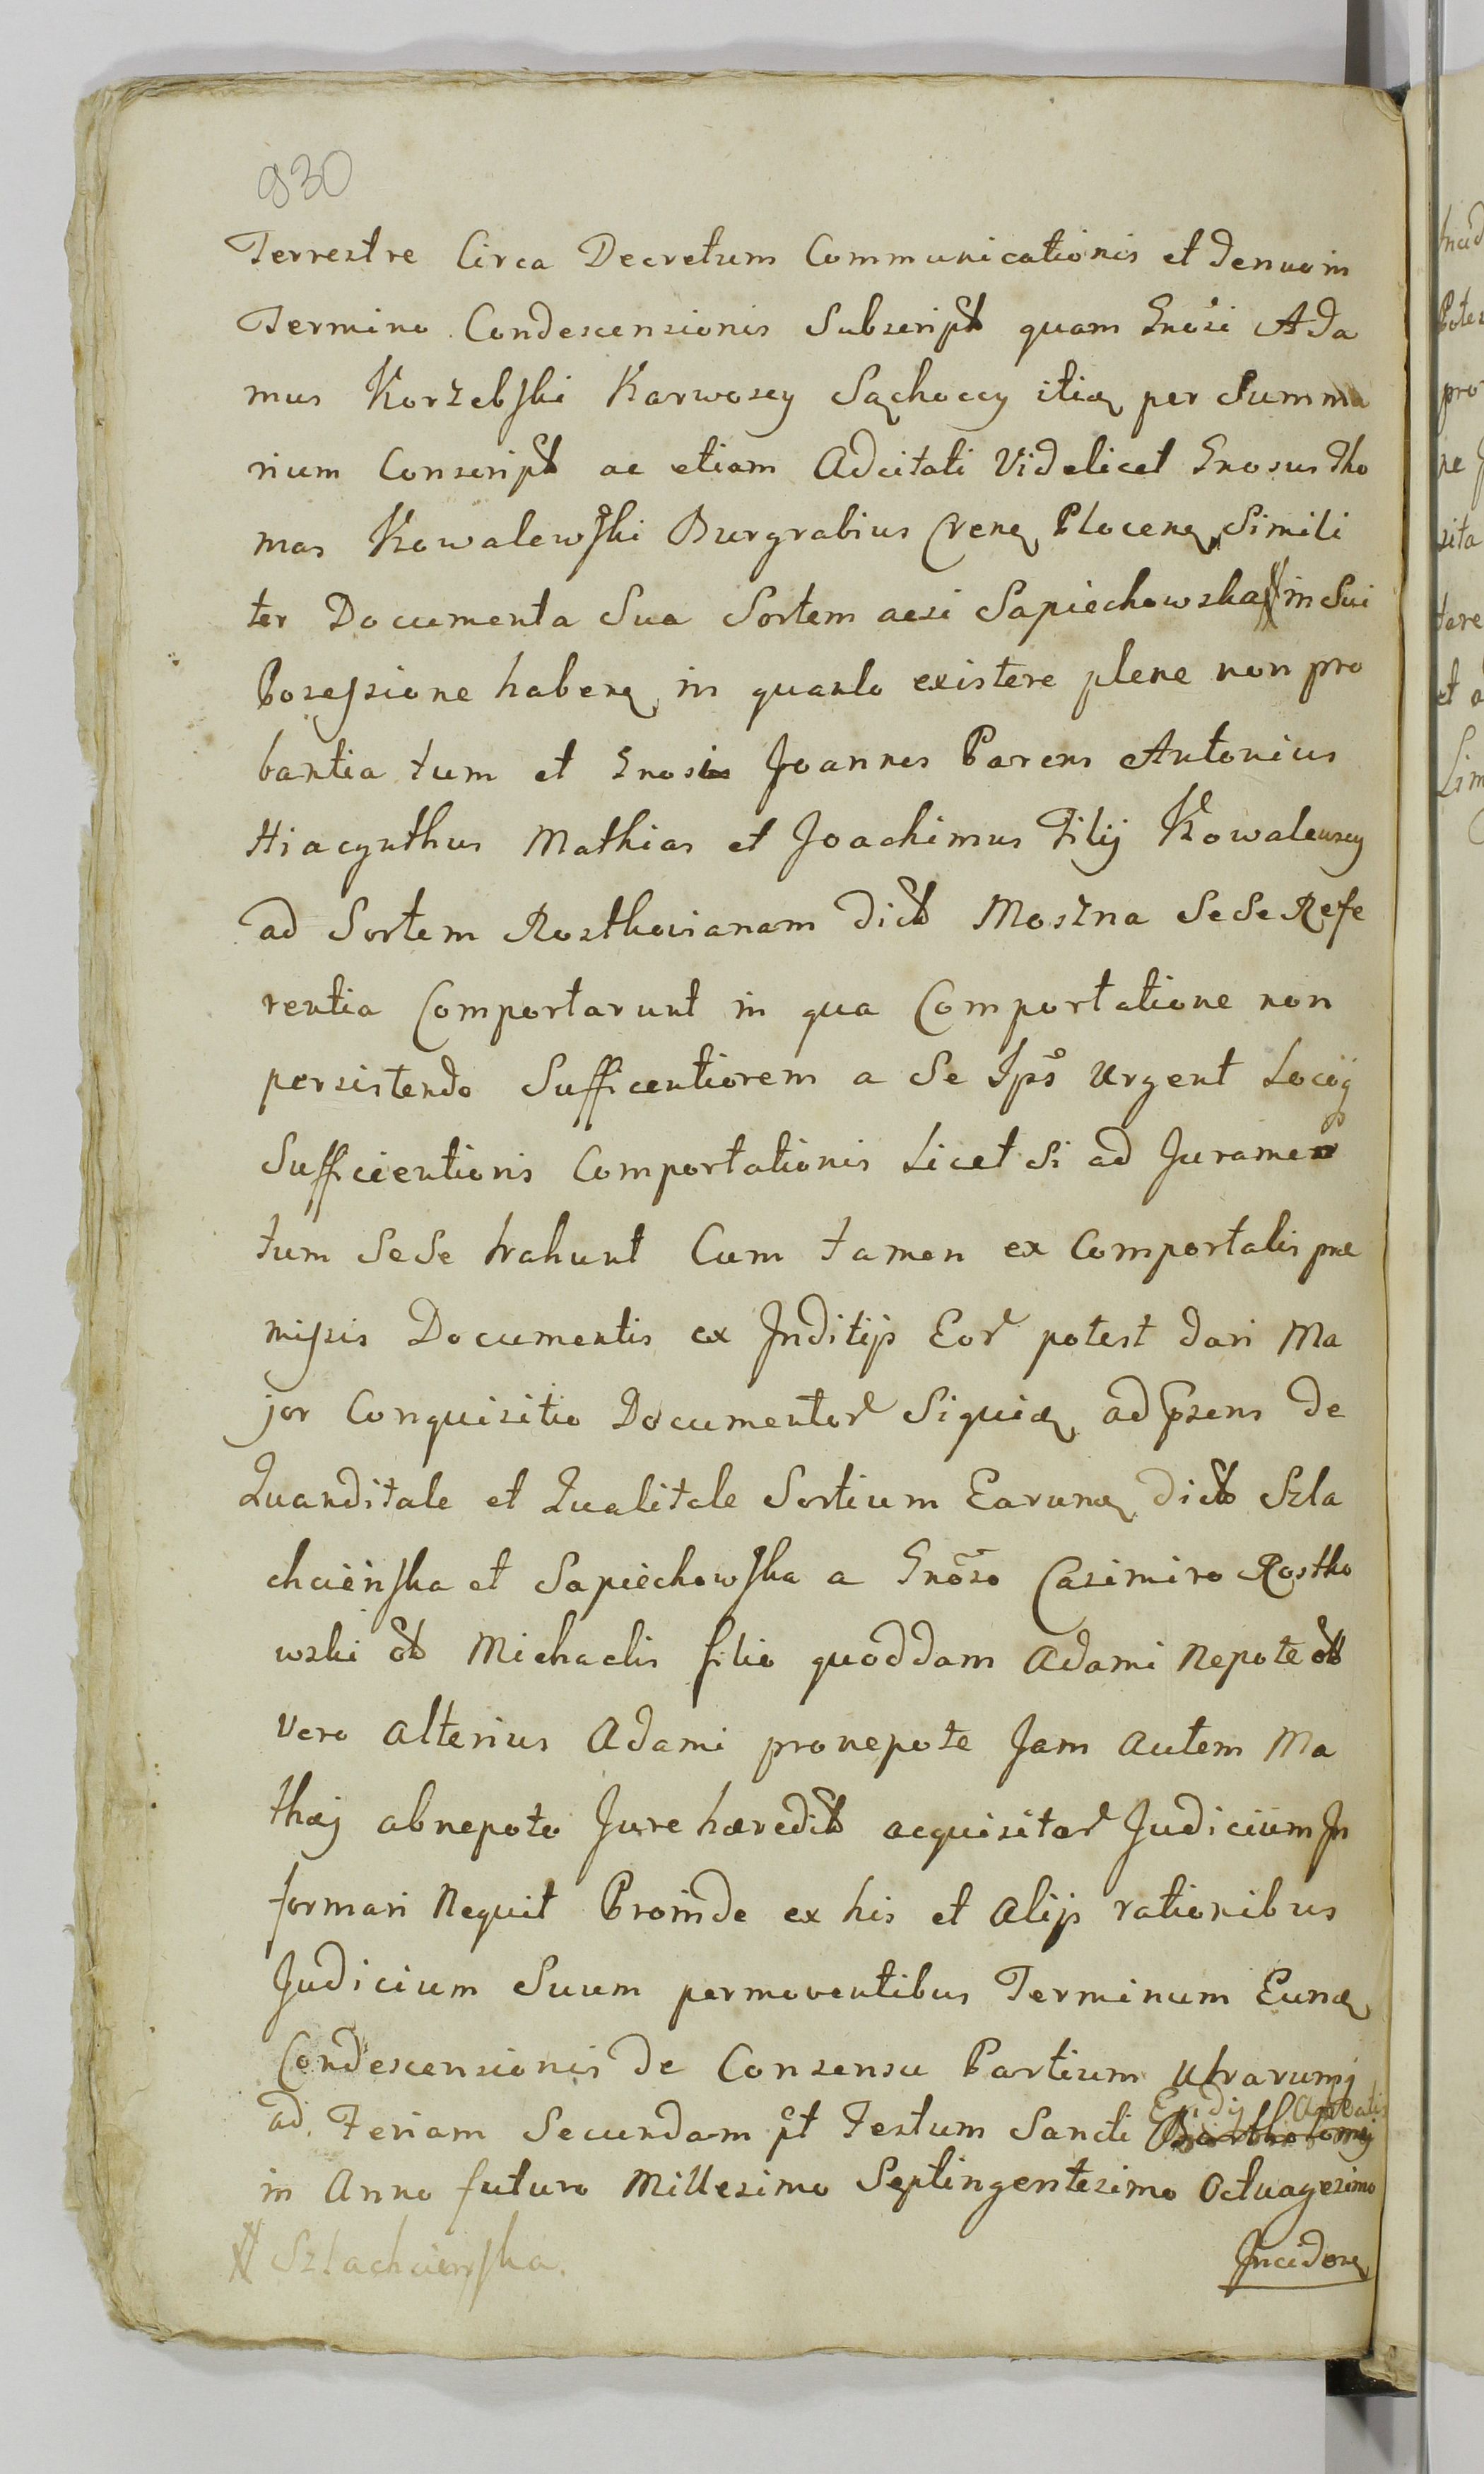 930
Terrestre Circa Decretum Communicationis et denuo in
Termino Condescensionis Subscript quam Gnosi Ada
mus Korzebski Karwosey Sąchoccy itiq per Summa
rium Conscript ac etiam Adcitati Videlicet Gnosus Tho
mas Kowalewski Burgrabius Crens Plocens Simili
ter Documenta Sua Sortem acsi Sapiechowska # in Sui
Posessione habens in quanto existere plene non pro
bantia tum et Gnosi Joannes Parens Antonius
Hiacynthus Mathias et Joachimus Filij Kowalewscy
ad Sortem Rosthovianam dict Moszna Sese Refe
rentia Comportarunt in qua Comportatione non
persistendo Sufficentiorem a Se Ipso Urgent Locoq
Sufficientioris Comportationis Licet Si ad Juramen
tum Sese trahunt Cum tamen ex Comportatis præ
missis Documentis ex Inditijs Eor potest dari Ma
jor Conquisitio Documentor Siquid ad psens de
Quanditate et Qualitate Sortium Earund dict Szla
chcieńska et Sapiechowska a Gnoso Casimiro Rostko
wski olt Michaelis filio quoddam Adami Nepote olt
vero alterius Adami pronepote Jam autem Ma
thæj abnepote Jure hæredit acquisitar Judicium In
formari Nequit Proinde ex his et alijs rationibus
Judicium Suum permoventibus Terminum Eund
Condescensionis de Consensu Partium utrarumq
ad Feriam Secundam pt Festum Sancti Bartholomæj
Egidij Abbatis
in Anno futuro Millesimo Septingentesimo Octuagesimo
# Szlachcienska.
Inciden